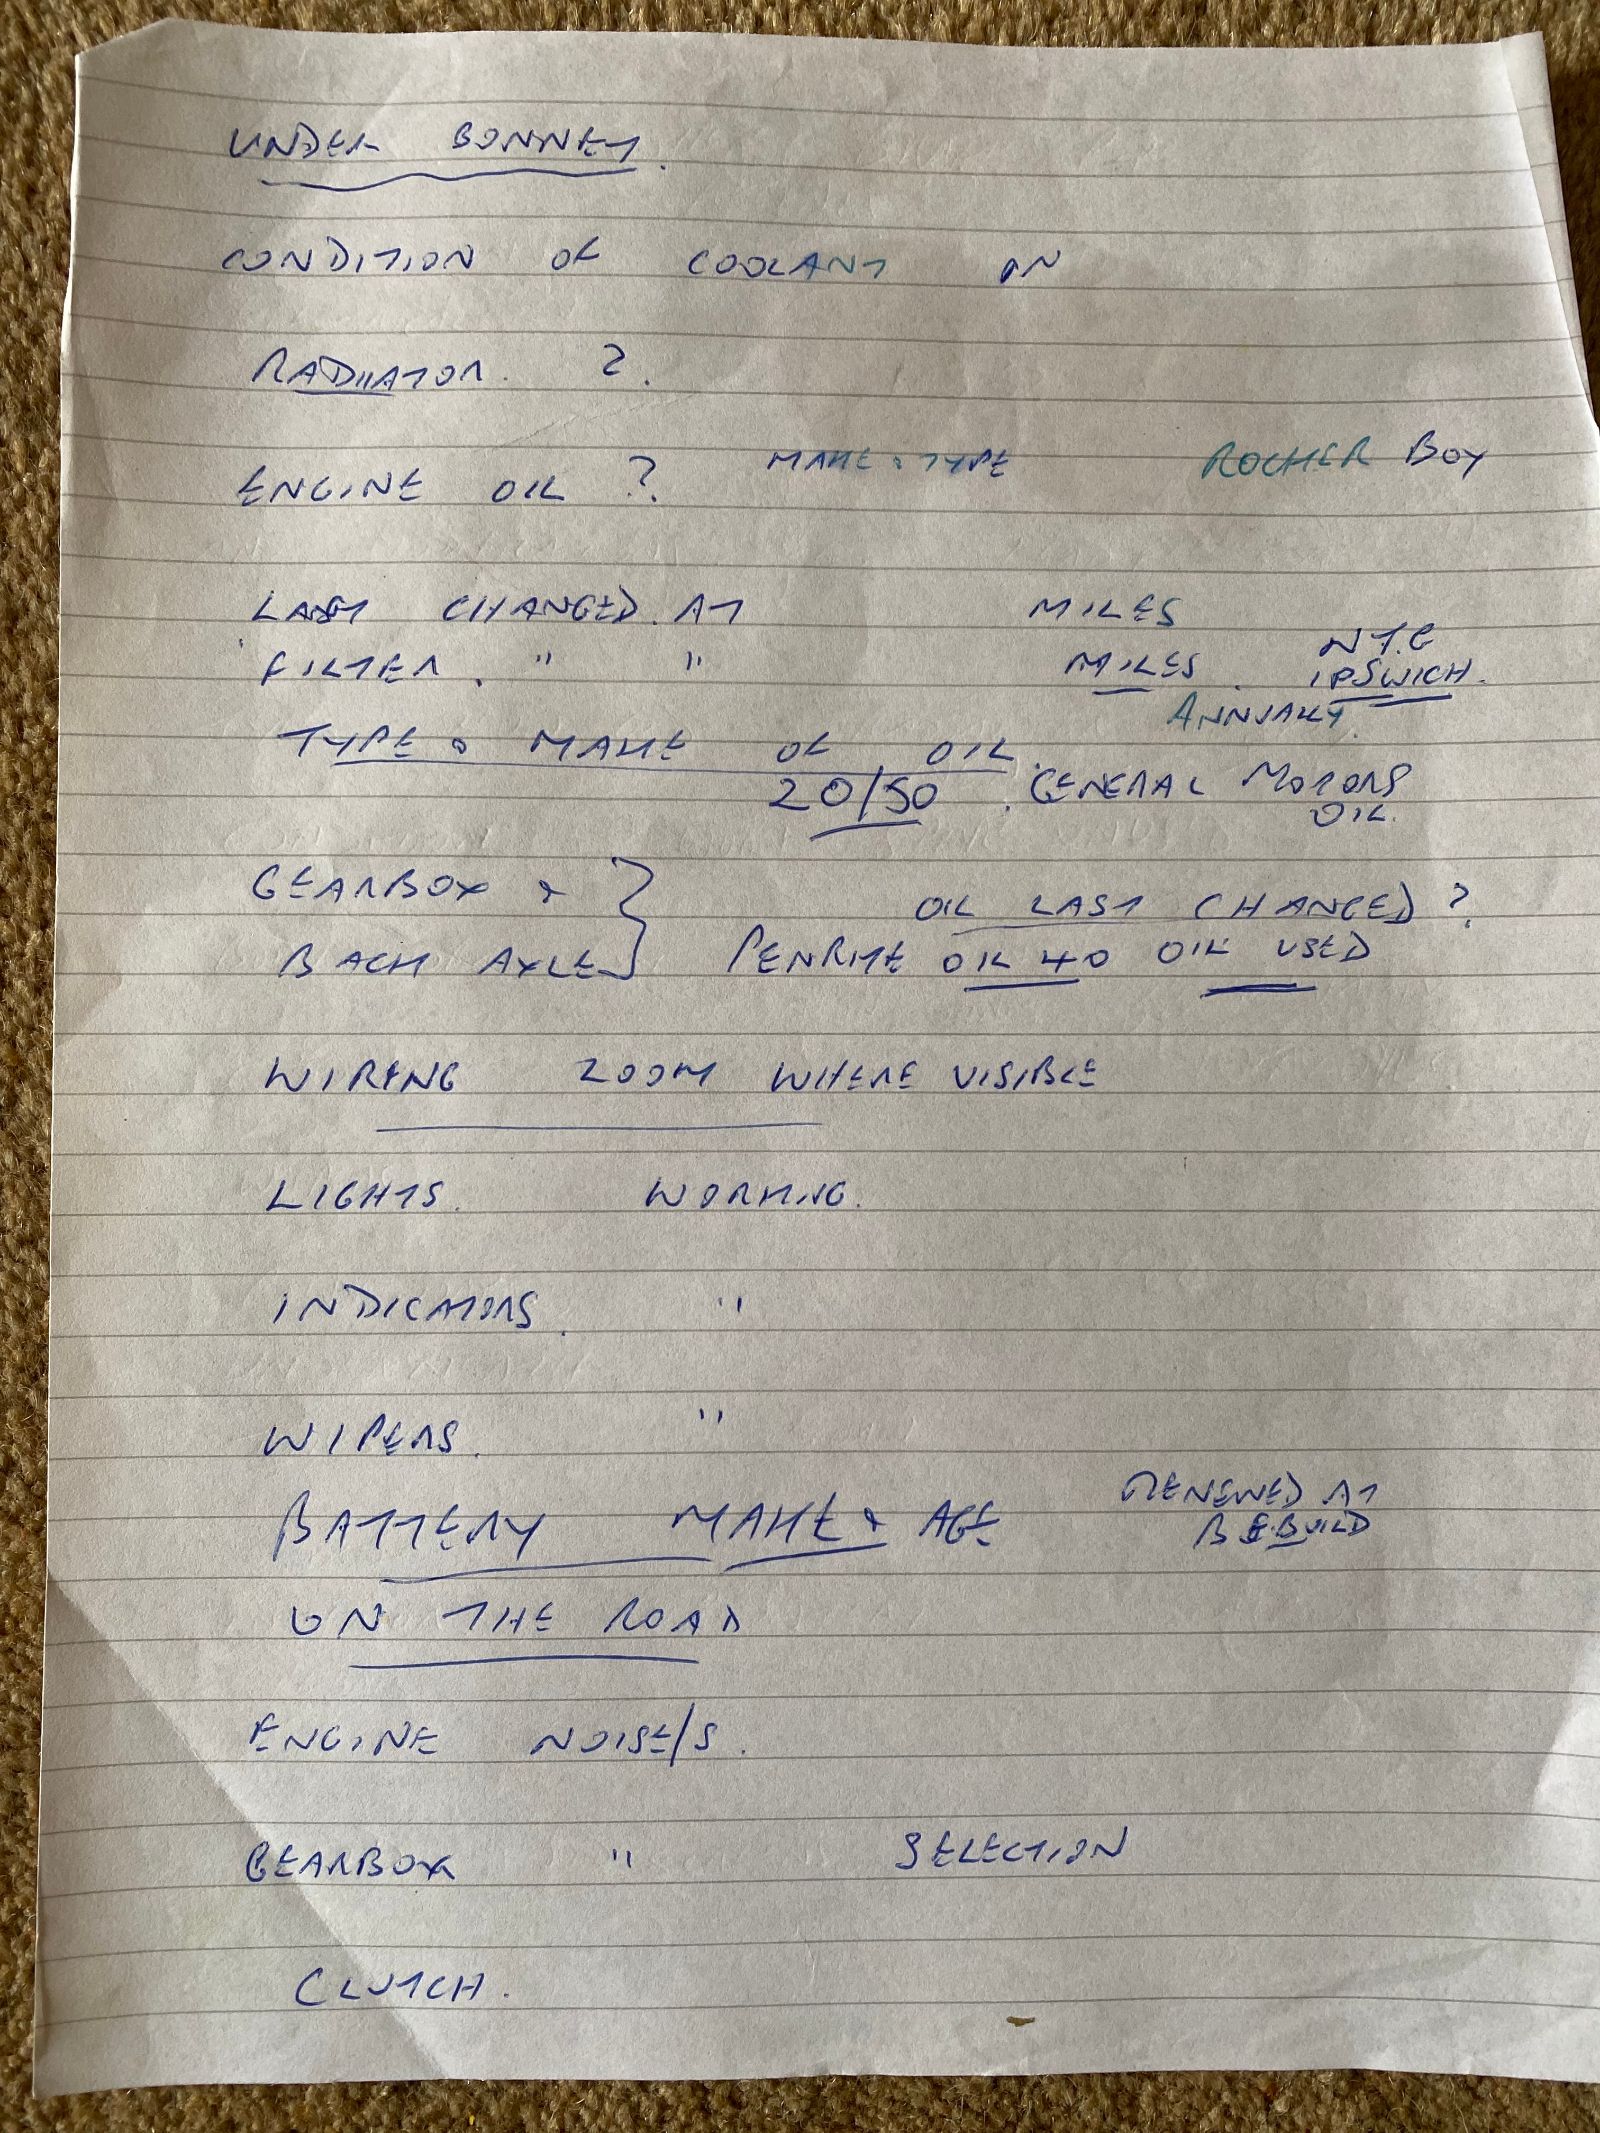 UNDER BONNET.
CONDITION OF COOLANT IN
RADIATOR. ?.
ENGINE OIL ? MAKE & TYPE ROCKER BOX
LAST CHANGED. AT MILES
FILTER. " " MILES. N.T.G
IPSWICH.
ANNUALLY.
TYPE & MAKE OF OIL.
20/50. GENERAL MOTORS
OIL.
GEARBOX & } OIL LAST CHANGED ?
BACK AXLE } PENRITE OIL 40 OIL USED
WIRING ZOOM WHERE VISIBLE
LIGHTS. WORKING.
INDICATORS. "
WIPERS. "
BATTERY MAKE & AGE RENEWED AT
ON THE ROAD
ENGINE NOISE/S.
GEARBOX " SELECTION
CLUTCH.